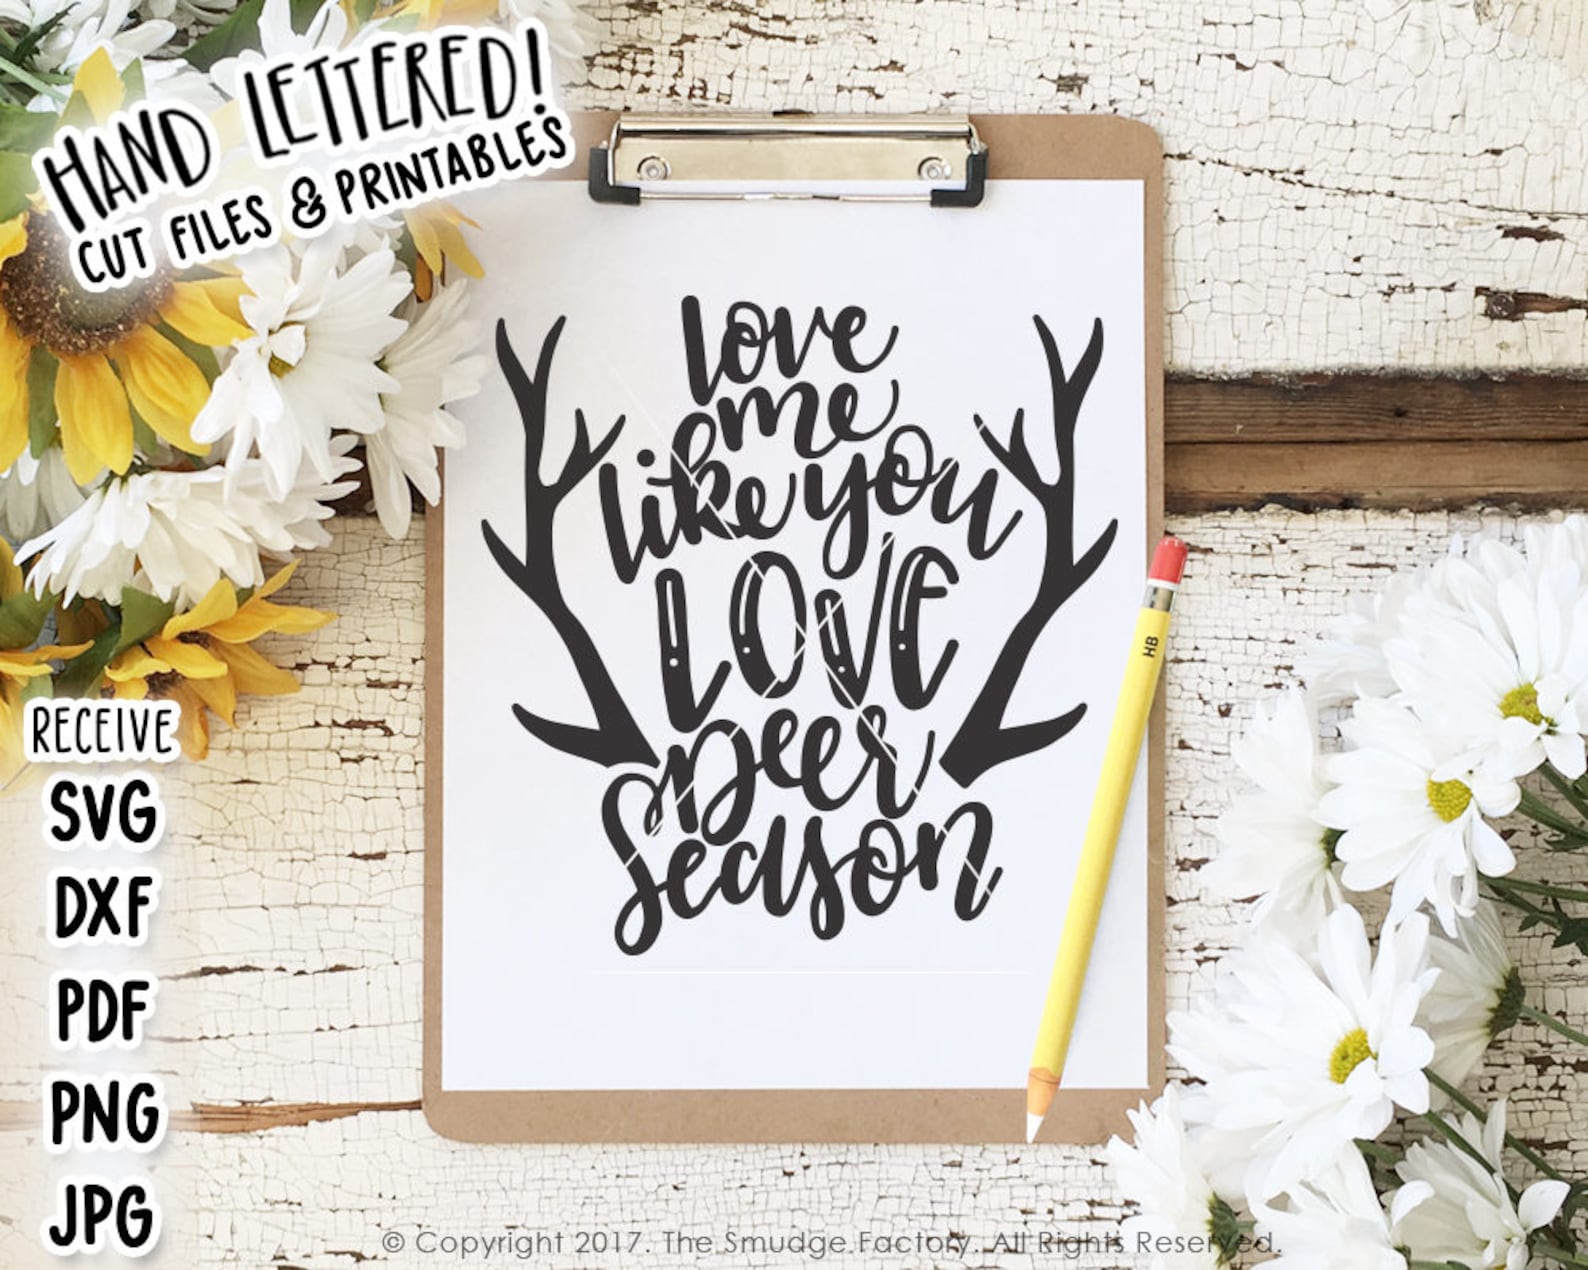 HAND LETTERED!
CUT FILES & PRINTABLES
love
me
like you
LOVE
Deer
Season
HB
RECEIVE
SVG
DXF
PDF
PNG
JPG
© Copyright 2017. The Smudge Factory. All Rights Reserved.